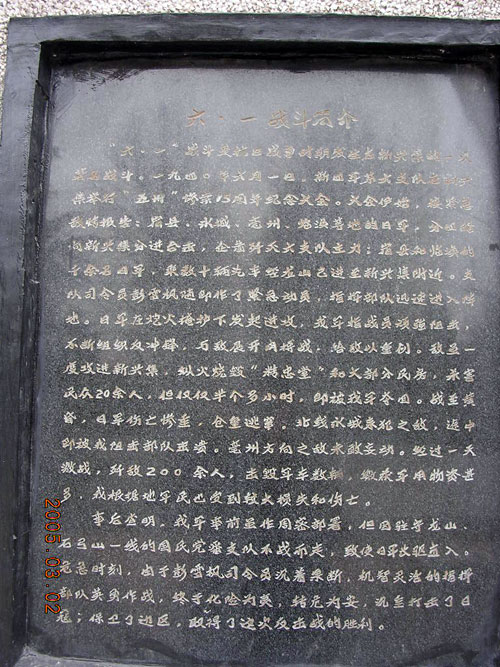 六·一战斗简介
"六·一"战斗是抗日战争时期发生在新兴集的一次
著名战斗。一九四〇年六月一日，新四军第六支队在新兴
集举行"五卅"惨案15周年纪念大会。大会伊始，
敌情报告：宿县、永城、亳州、等地的日军，分
向新兴集分进合击，企图歼灭六支队主力；宿县
千余名日军，乘数十辆汽车经龙山已进至新兴集附近。支
队司令员彭雪枫随即作了紧急动员，指挥部队迅速进入阵
地。日军在炮火掩护下发起进攻，我军指战员顽强阻击，
不断组织反冲锋，与敌展开肉搏战，给敌以重创。敌虽一
度攻进新兴集，纵火烧毁"精忠堂"和大部分民房，杀害
民众20余人，但仅仅半个多小时，即被我军夺回。战至黄
昏，日军伤亡惨重，仓皇逃窜。北线永城来犯之敌，途中
即被我阻击部队击溃。亳州方向之敌未敢妄动。经过一天
激战，歼敌200余人，击毁军车数辆，缴获军用物资甚
多，我根据地军民也受到较大损失和伤亡。
事后查明，我军事前虽作周密部署，但因驻守龙山、
石弓山一线的国民党番支队不战而走，致使日军长驱直入。
危急时刻，由于彭雪枫司令员沉着果断，机智灵活的指挥
部队英勇作战，终于化险为夷，转危为安，沉重打击了日
寇；保卫了边区，取得了这次反击战的胜利。
2005.03.02